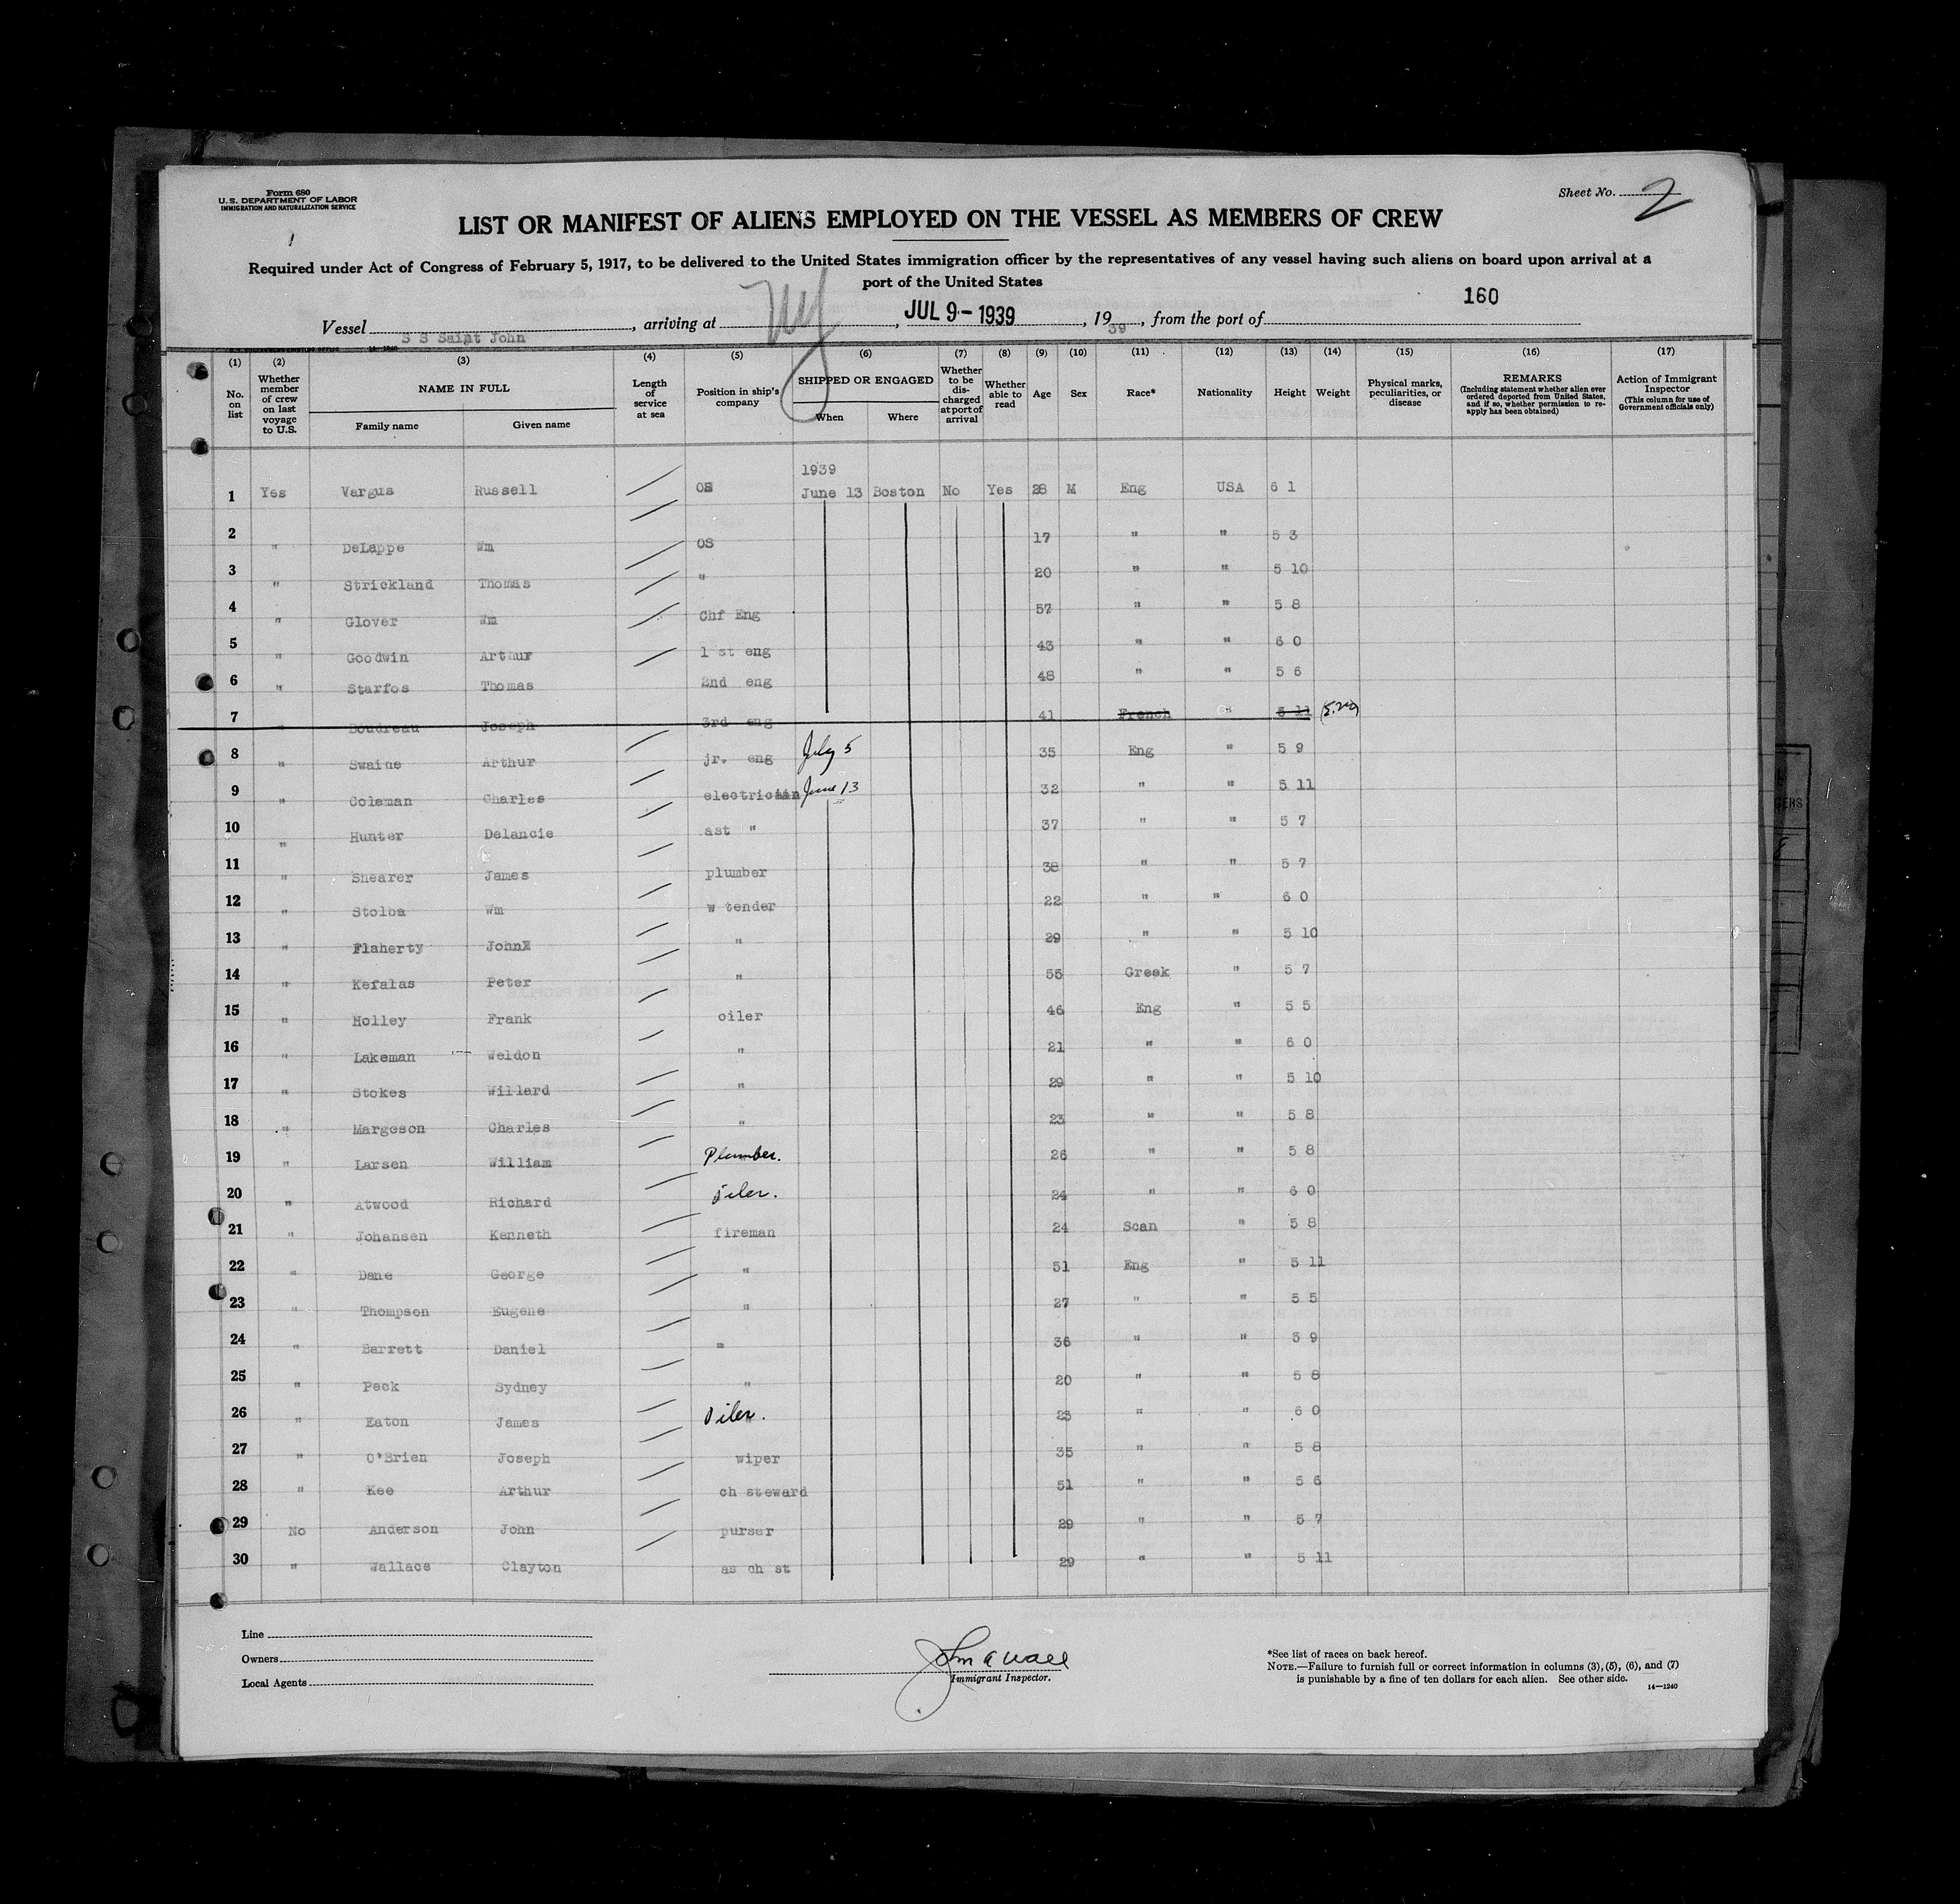 Form 680
U.S. DEPARTMENT OF LABOR
IMMIGRATION AND NATURALIZATION SERVICE
Sheet No. 2
LIST OR MANIFEST OF ALIENS EMPLOYED ON THE VESSEL AS MEMBERS OF CREW
Required under Act of Congress of February 5, 1917, to be delivered to the United States immigration officer by the representatives of any vessel having such aliens on board upon arrival at a
port of the United States
160
Vessel S S Saint John, arriving at NY, JUL 9-1939, 1939, from the port of
(1) (2) (3) (4) (5) (6) (7) (8) (9) (10) (11) (12) (13) (14) (15) (16) (17)
No. on list
Whether member of crew on last voyage to U.S.
NAME IN FULL
Family name
Given name
Length of service at sea
Position in ship's company
SHIPPED OR ENGAGED
When
Where
Whether to be discharged at port of arrival
Whether able to read
Age
Sex
Race*
Nationality
Height
Weight
Physical marks, peculiarities, or disease
REMARKS
(Including statement whether alien ever ordered deported from United States, and if so, whether permission to reapply has been obtained)
Action of Immigrant Inspector
(This column for use of Government officials only)
1939
1 Yes Vargus Russell OS June 13 Boston No Yes 28 M Eng USA 6 1
2 " DeLappe Wm OS 17 " " 5 3
3 " Strickland Thomas " 20 " " 5 10
4 " Glover Wm Chf Eng 57 " " 5 8
5 " Goodwin Arthur 1 st eng 43 " " 6 0
6 " Starfos Thomas 2nd eng 48 " " 5 6
7 " Boudreau Joseph 3rd eng 41 French " 5 11
8 " Swaine Arthur jr. eng July 5 35 Eng " 5 9
9 " Coleman Charles electrician June 13 32 " " 5 11
10 " Hunter Delancie ast " 37 " " 5 7
11 " Shearer James plumber 38 " " 5 7
12 " Stolba Wm w tender 22 " " 6 0
13 " Flaherty John " 29 " " 5 10
14 " Kefalas Peter " 55 Greek " 5 7
15 " Holley Frank oiler 46 Eng " 5 5
16 " Lakeman Weldon " 21 " " 6 0
17 " Stokes Willard " 29 " " 5 10
18 " Margeson Charles " 23 " " 5 8
19 " Larsen William Plumber. 26 " " 5 8
20 " Atwood Richard Oiler. 24 " " 6 0
21 " Johansen Kenneth fireman 24 Scan " 5 8
22 " Dane George " 51 Eng " 5 11
23 " Thompson Eugene " 27 " " 5 5
24 " Barrett Daniel " 36 " " 5 9
25 " Peck Sydney " 20 " " 5 8
26 " Eaton James Oiler. 23 " " 6 0
27 " O'Brien Joseph wiper 35 " " 5 8
28 " Kee Arthur ch steward 51 " " 5 6
29 No Anderson John purser 29 " " 5 7
30 " Wallace Clayton as ch st 29 " " 5 11
Line
Owners
Local Agents
John A Wall
Immigrant Inspector.
*See list of races on back hereof.
NOTE.—Failure to furnish full or correct information in columns (3), (5), (6), and (7)
is punishable by a fine of ten dollars for each alien. See other side.
14—1240